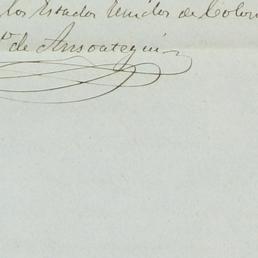 los Estados Unidos de Colom
to de Ansoategui